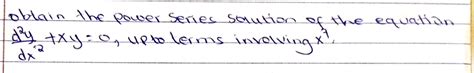 oblain the power series solution of the equation
d²y/dx² + xy = 0, up to terms involving x⁷.